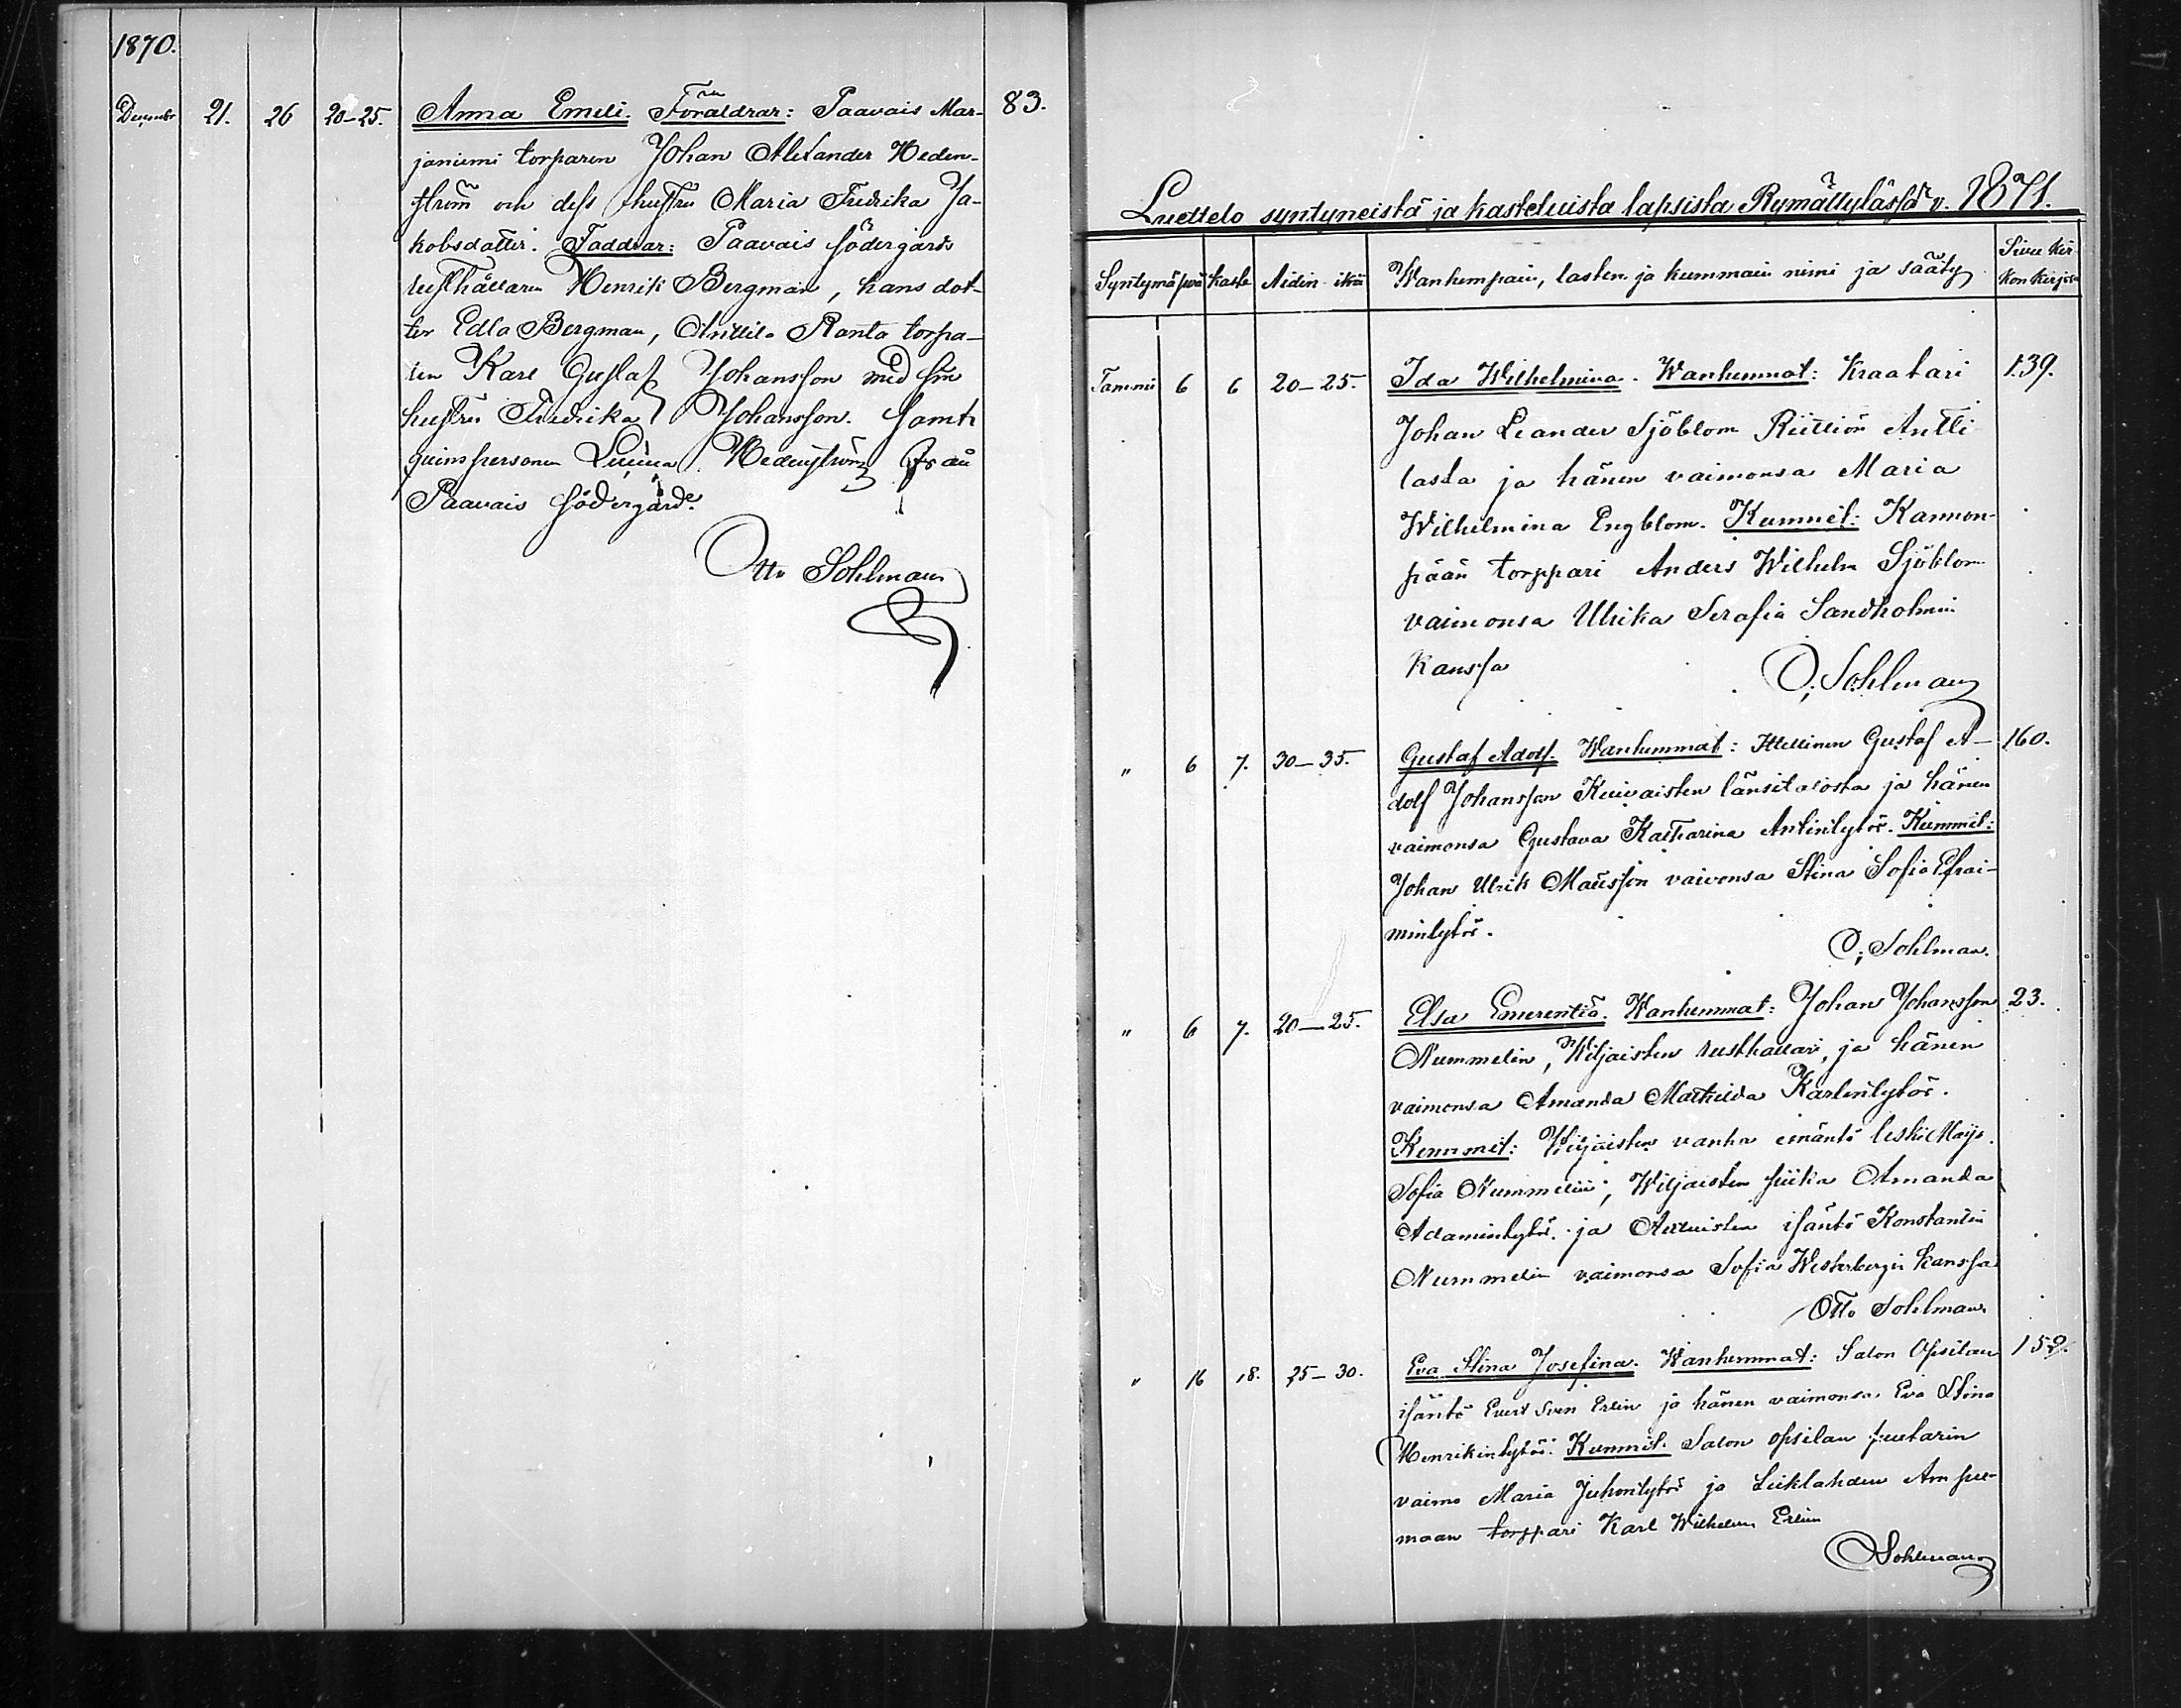 1870.
Decembr 21. 26 20-25. Anna Emili. Föräldrar: Paavais Mar- 83.
janiemi torparen Johan Alexander Heden-
ström och dess hustru Maria Fredrika Ja-
kobsdotter. Faddrar: Paavais Södergårds
rusthållaren Henrik Bergman, hans dot-
ter Edla Bergman, Anttila Ranta torpa-
ren Karl Gustaf Johansson med sin
hustru Fredrika Johansson. Samt
qvinspersonen Hedenström från
Paavais Södergård.
Otto Sohlman
Luettelo syntyneistä ja kasteluista lapsista Rymättylässä v. 1871.
Syntymäpvä kaste Äidin ikä Wanhempain, lasten ja kummain nimi ja sääty Sivu kir-
kon kirjssa
Tammi 6 6 20-25. Ida Wilhelmina. Wanhemmat: Kraatari 139.
Johan Leander Sjöblom Riittiön Antti
lasta ja hänen vaimonsa Maria
Wilhelmina Engblom. Kummit: Kannon-
pään torppari Anders Wilhelm Sjöblom
vaimonsa Ulrika Serafia Sandholmin
kanssa
O. Sohlman
" 6 7. 30-35. Gustaf Adolf. Wanhemmat: Itellinen Gustaf A- 160.
dolf Johansson Kuivaisten länsitalosta ja hänen
vaimonsa Gustava Katharina Antintytär. Kummit:
Johan Ulrik Mausson vaivonsa Stina Sofia Efrai-
mintytär.
O. Sohlman.
" 6 7. 20-25. Elsa Emerentia. Wanhemmat: Johan Johansson 23.
Nummelin, Wiljaisten rusthallari, ja hänen
vaimonsa Amanda Mathilda Karlintytär.
Kummit: Wiljaisten vanha emäntä leski Maija
Sofia Nummelin, Wiljaisten piika Amanda
Adamintytär ja isäntä Konstantin
Nummelin vaimonsa Sofia Westerbergin kanssa
Otto Sohlman
" 16 18. 25-30. Eva Stina Josefina. Wanhemmat: Salon Opsilan 152.
isäntä Evert Sven Erlin ja hänen vaimonsa Eva Stina
Henrikintytär. Kummit. Salon opsilan puutarin
vaimo Maria Juhontytär ja Leiklahden Ampu-
maan torppari Karl Wilhelm Erlin
O Sohlman